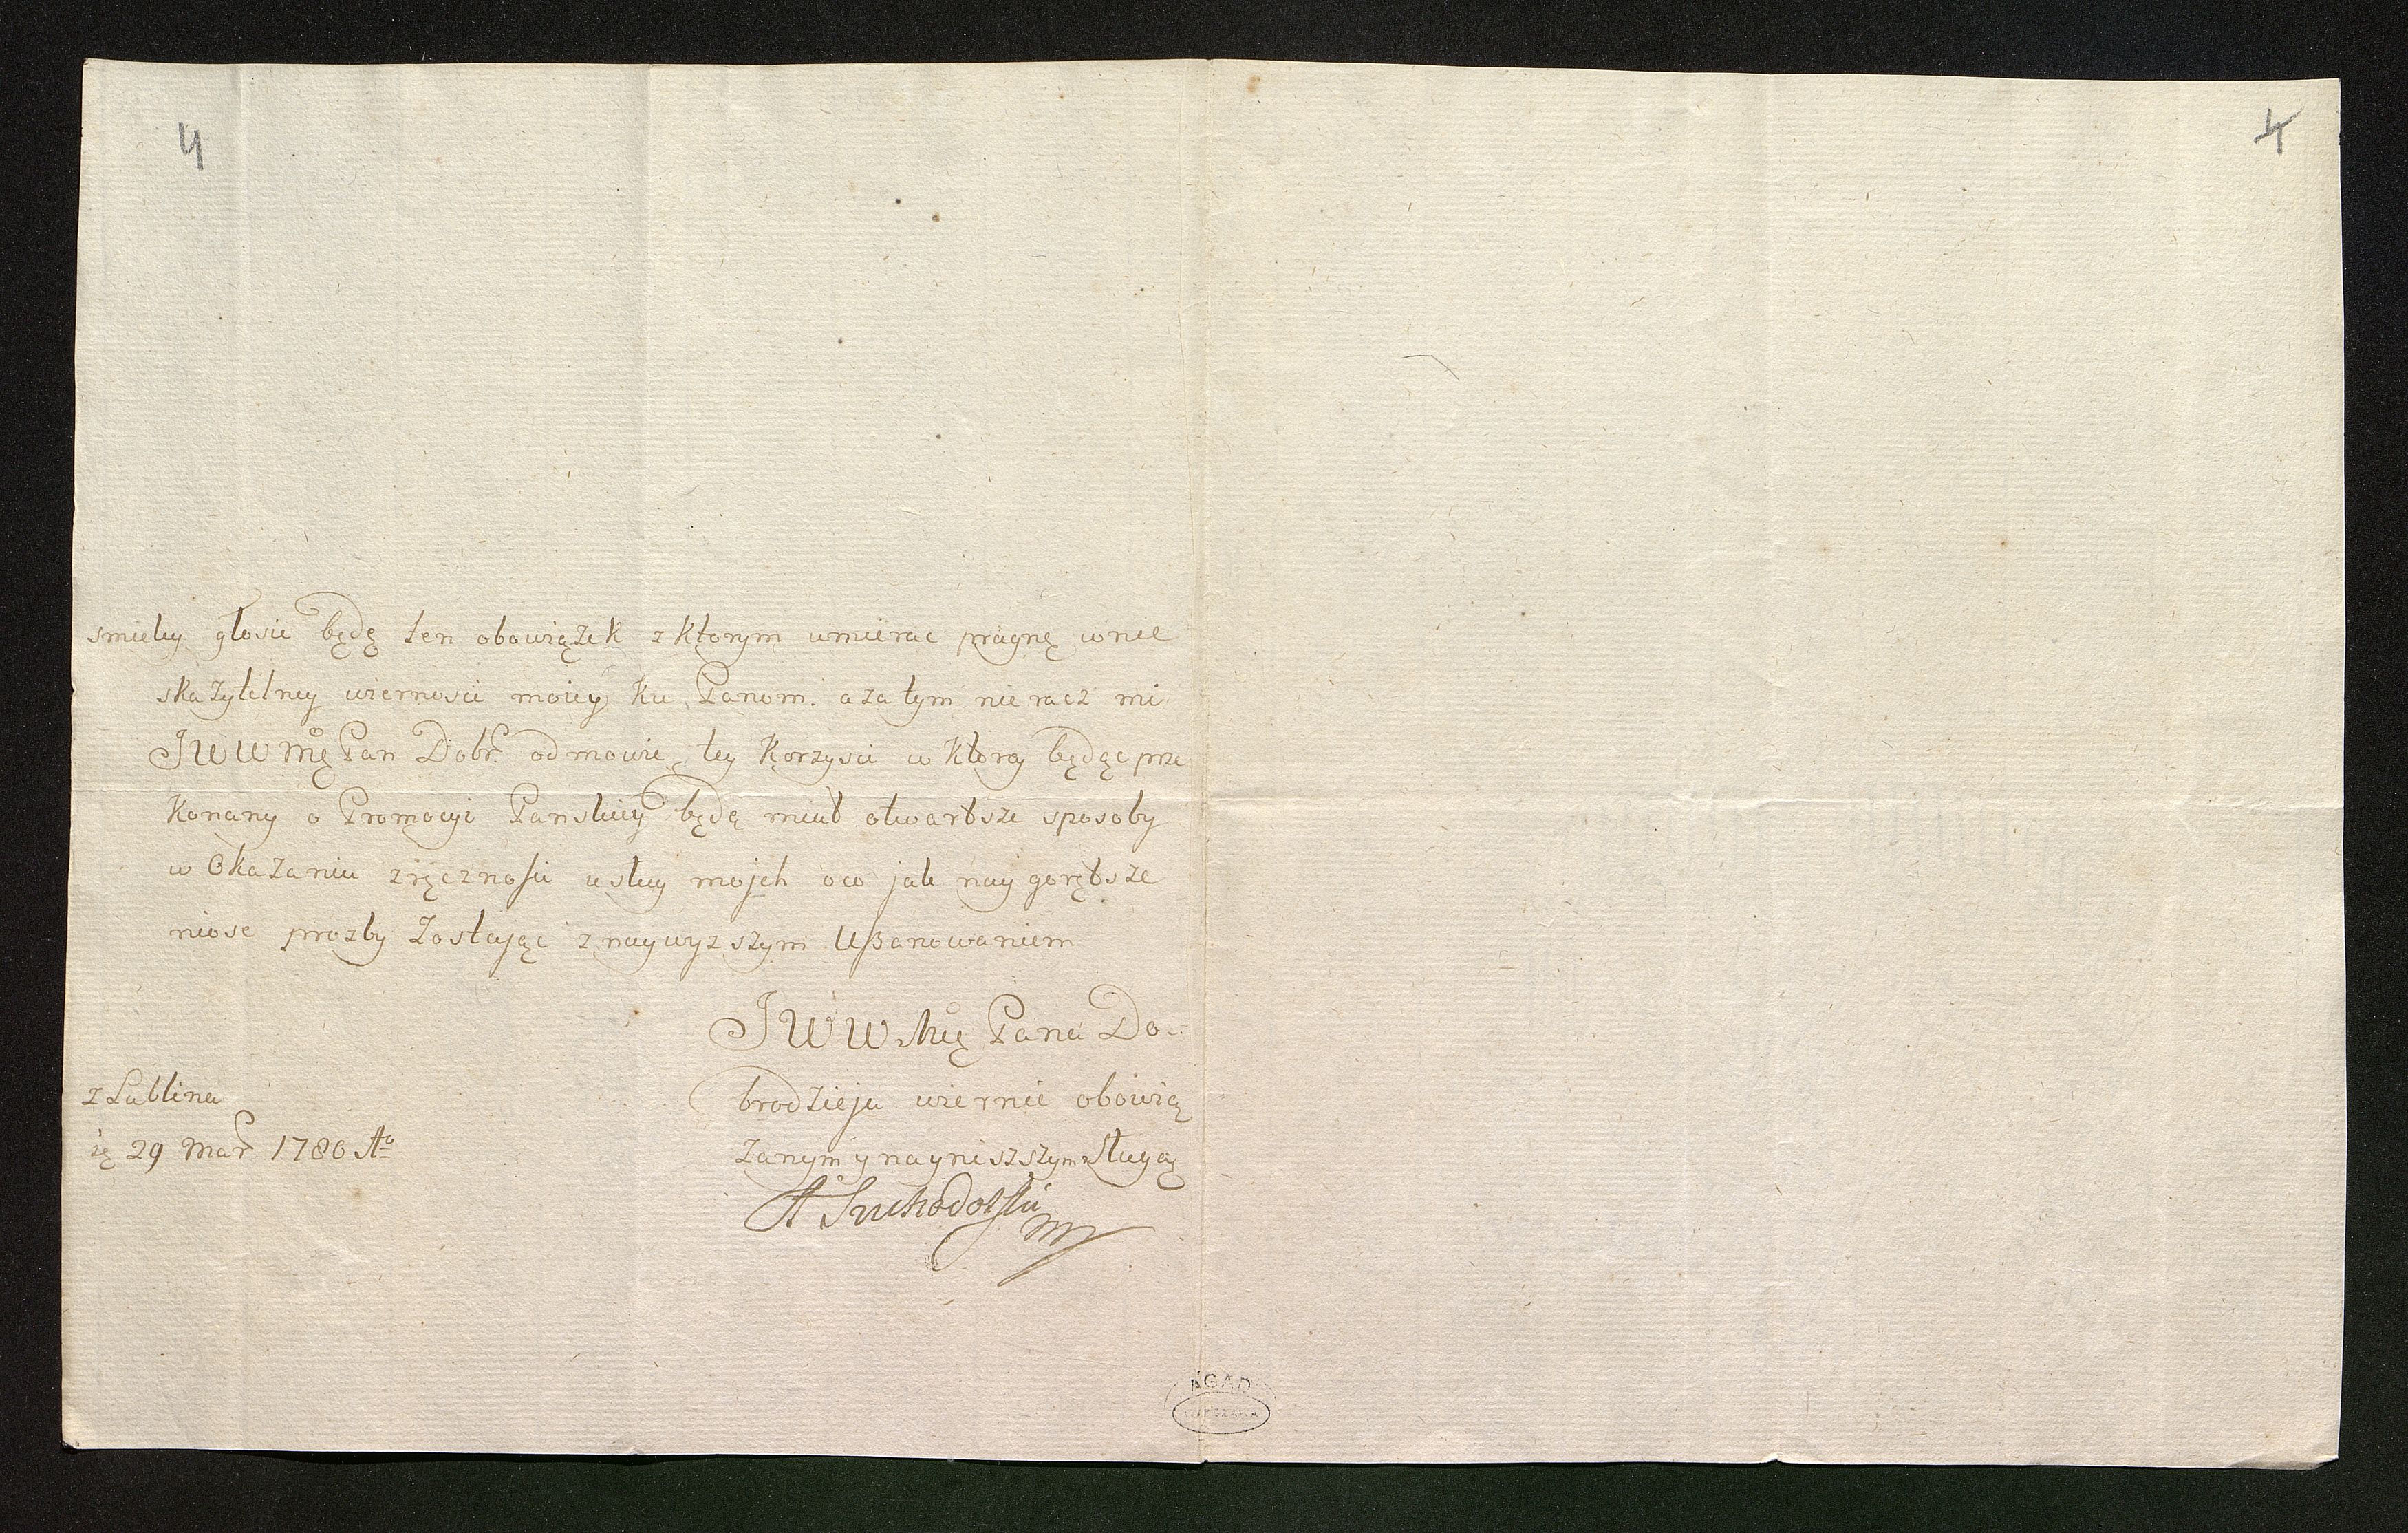 4
4
smiełey głosie będę ten obowiązek z ktorym umierac pragnę w nie
skazytelney wiernosci moiey ku Panom. a zatym nie racz mi
JWWMę Pan Dobr. odmowic tey korzysci w ktorey będąc prze
konany o Promocyi Panskiey będę miał otwartsze sposoby
w Okazaniu zręcznosci usług mojch oco jak naygorętsze
niose prozby Zostając z naywyzszym Ußanowaniem
JWWMę Pana Do-
brodzieja wiernie obowią
zanym y nayniszszym Sługą
z Lublina
29 Mar 1786 Ao
A Suchodolski
mp
AGAD
WARSZAWA